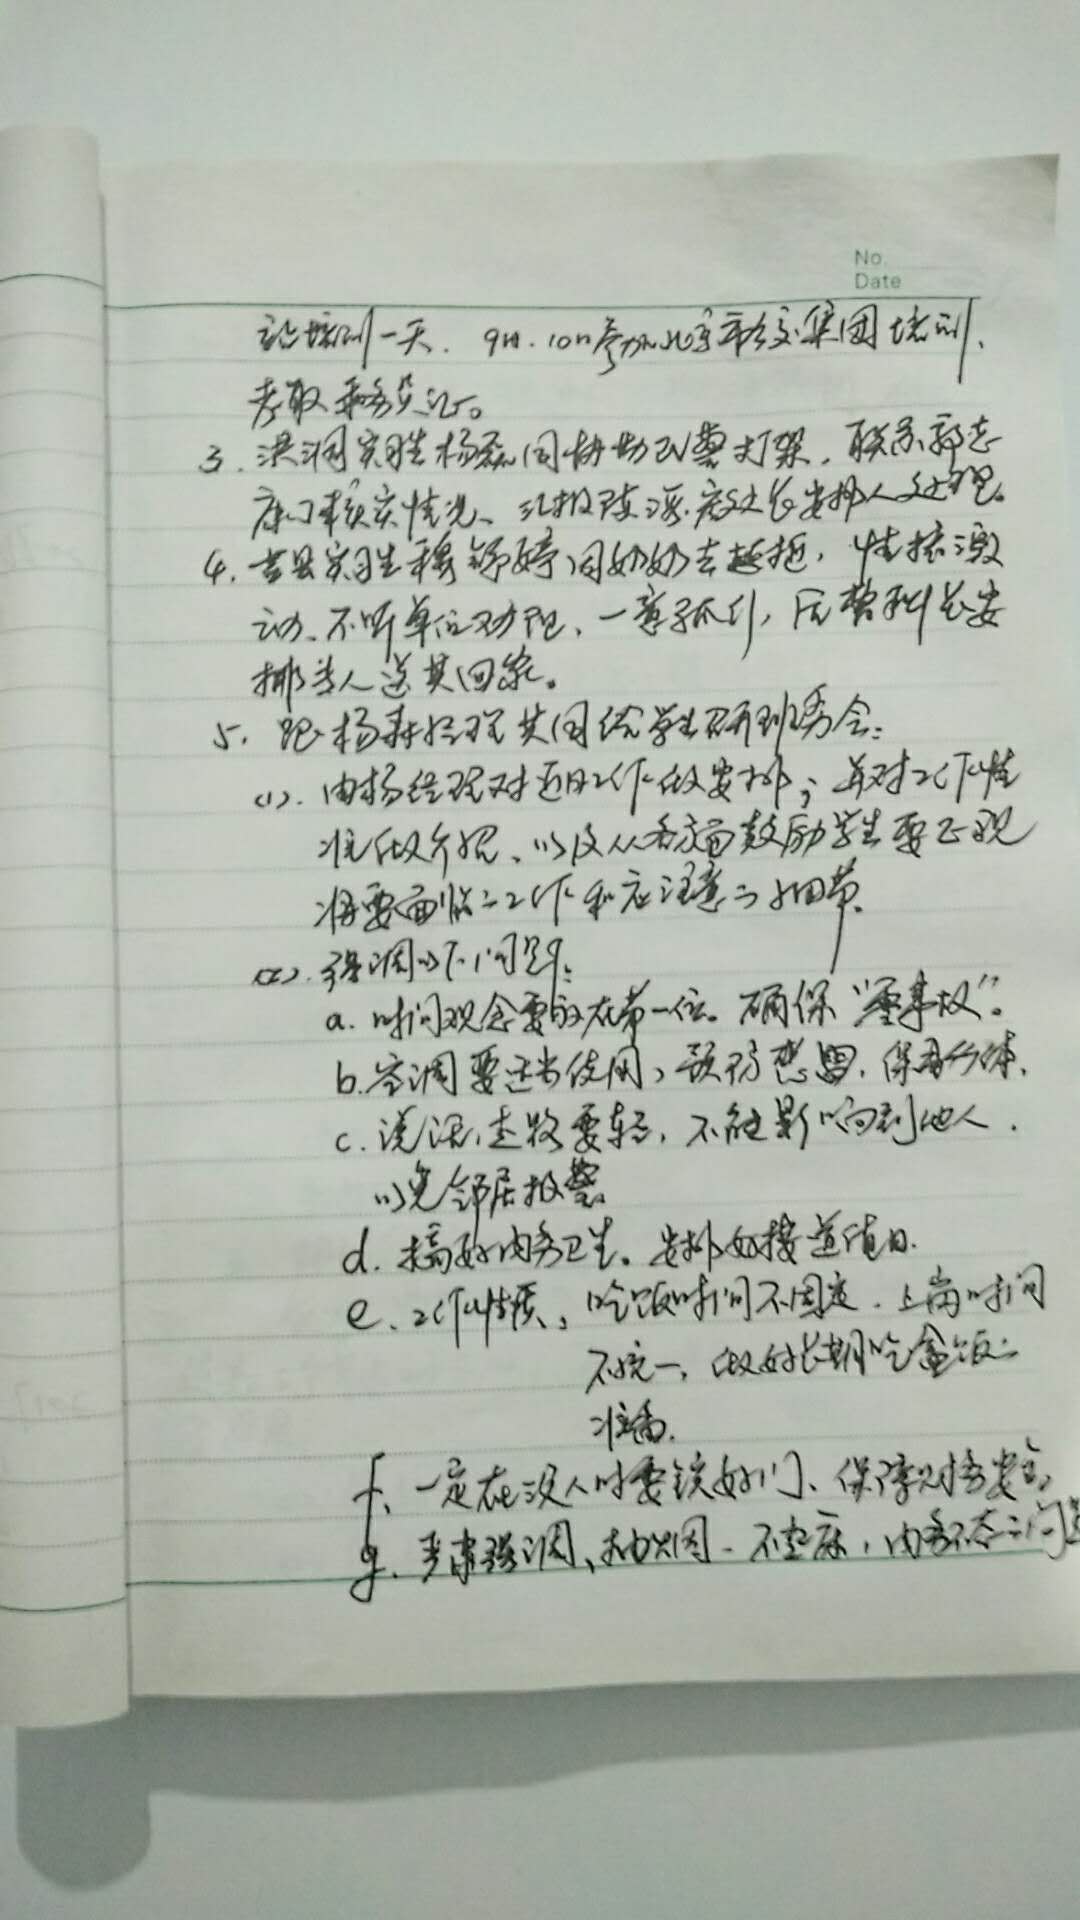 No.
Date
培训一天. 9日.10日参加北京市公交集团培训,
考取乘务员证。
3. 洪洞实习生杨磊同协助民警打架, 联系郭志
核实情况、汇报陈 处长安排人处理。
4. 吉县实习生 婷同 去 , 情绪激
动、不听单位劝阻、一意孤行, 长安
排专人送其回家。
5. 跟杨寿经理共同给学生召开班委会:
(1). 由杨经理对近日工作做安排; 并对工作性
准做介绍、以及从各方面鼓励学生要正视
将要面临之工作和应注意之细节.
(2). 强调以下问题:
a. 时间观念要放在第一位。确保“零事故”。
b. 空调要适当使用, 预防感冒. 保重身体.
c. 说话,走路要轻, 不能影响到他人.
以免邻居报警.
d. 搞好内务卫生。安排好楼道值日.
e. 工作性质, 吃饭时间不固定. 上岗时间
不统一, 做好长期吃盒饭之
准备.
f. 一定在没人时要锁好门、保障财务安全,
g. 严肃强调、抽烟、不 床, 内务不 之问题